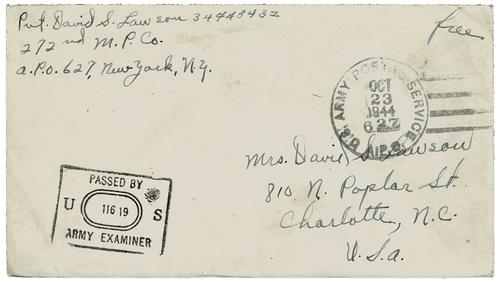 Pvt. David S. Lawson 34448432
272nd M.P. Co.
a.P.O. 627, New York, N.Y.
free
U.S. ARMY POSTAL SERVICE
OCT
23
1944
627
A.P.O.
Mrs. David S. Lawson
810 N. Poplar St.
Charlotte, N.C.
U.S.a.
PASSED BY
U 11619 S
ARMY EXAMINER